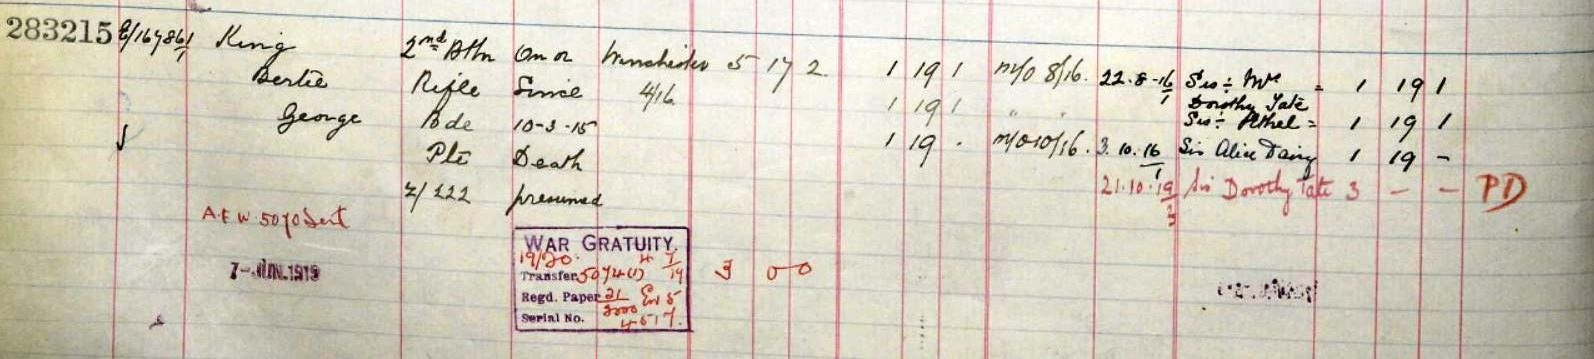 283215 E/167861/1 King 2nd Btn On or Winchester 5 17 2 1 19 1 M/O 8/16. 22-8-16 Sis: Mrs = 1 19 1
Bertie Rifle Since 4/16 1 19 1 " " 1 Dorothy Tate
George Bde 10-3-15 Sis: Ethel = 1 19 1
Pte Death 1 19 . M/O 10/16. 3.10.16 Sis Alice Daisy 1 19 -
Z/222 presumed 21.10.19 Sis Dorothy Tate 3 - - PD
A.F.W 5070 Sent
7-JUN.1919
WAR GRATUITY.
19/20.
Transfer 5074(1) 3 0 0
Regd. Paper 21 En 5
Serial No. 2000
4517.